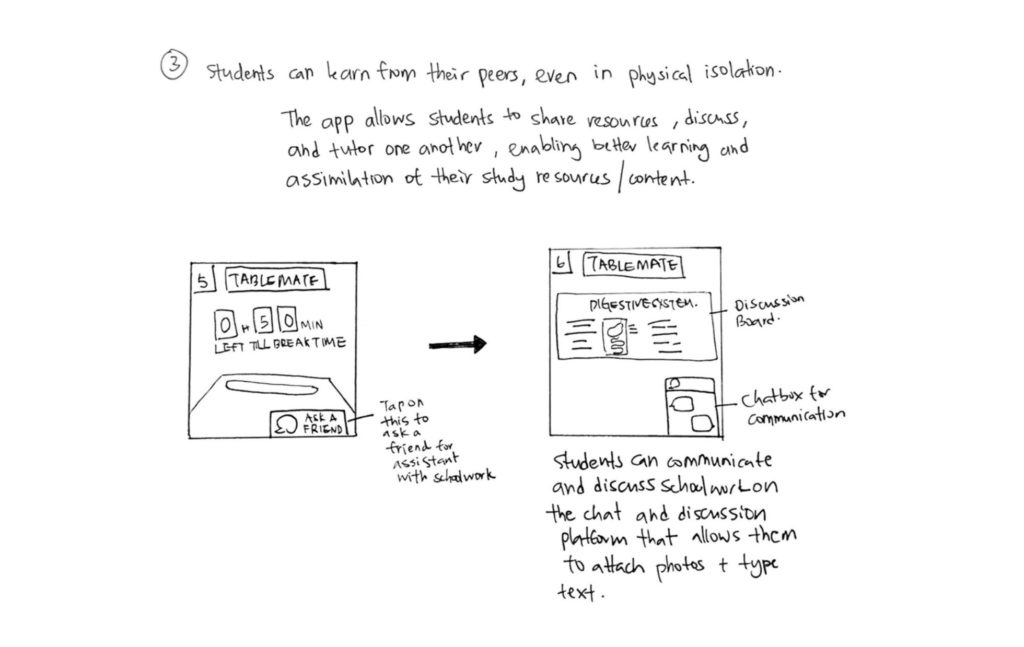 3 Students can learn from their peers, even in physical isolation.
The app allows students to share resources, discuss,
and tutor one another, enabling better learning and
assimilation of their study resources/content.
5 TABLEMATE
0 H 50 MIN
LEFT TILL BREAKTIME
ASK A
FRIEND
Tap on
this to
ask a
friend for
assistant
with schoolwork
6 TABLEMATE
DIGESTIVE SYSTEM.
Discussion
Board.
Chatbox for
communication
Students can communicate
and discuss schoolwork on
the chat and discussion
platform that allows them
to attach photos + type
text.